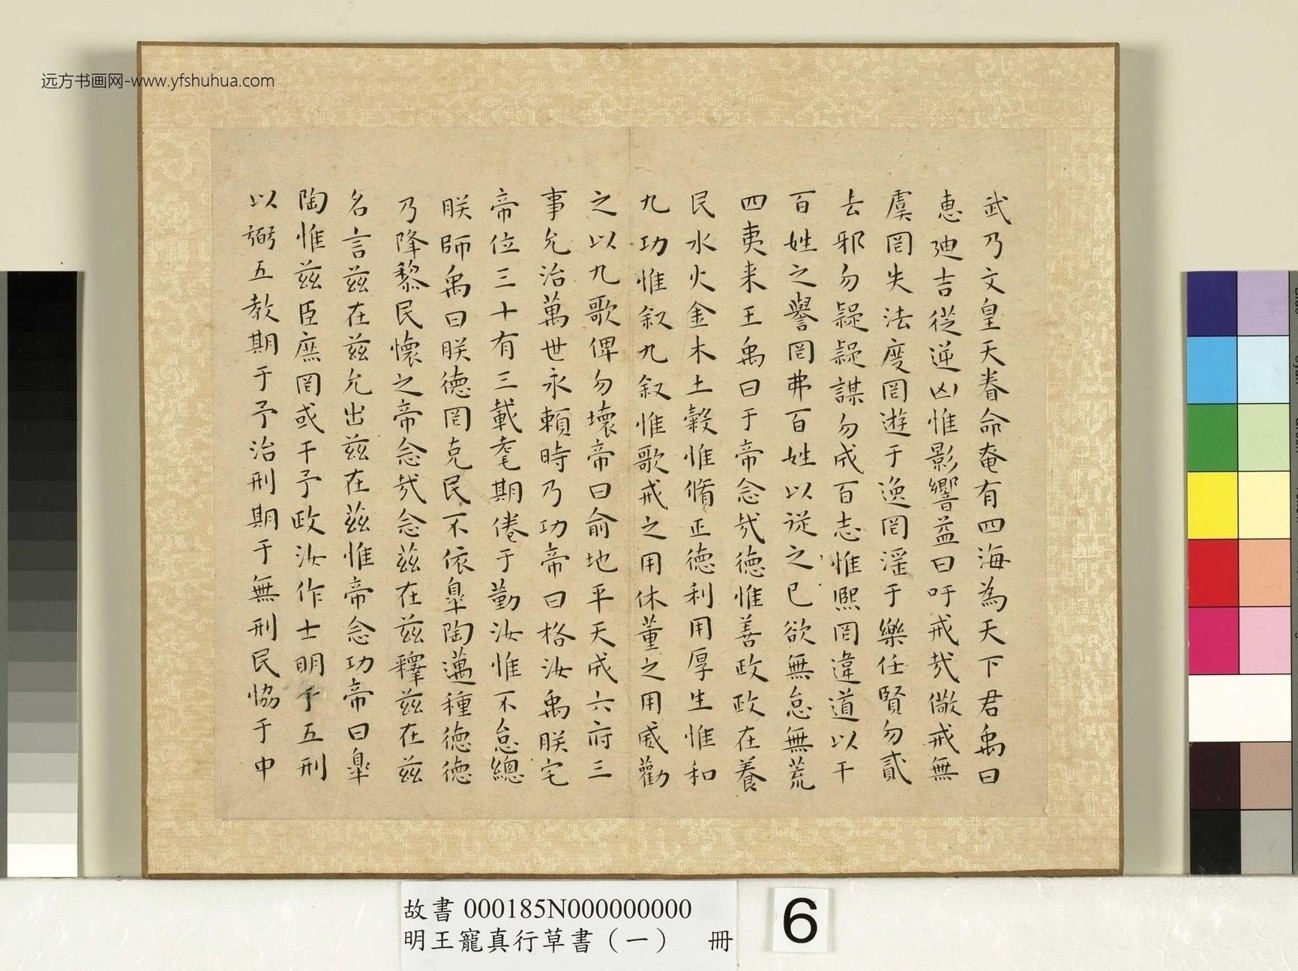 远方书画网-www.yfshuhua.com
武乃文皇天眷命奄有四海為天下君禹曰
惠迪吉從逆凶惟影響益曰吁戒哉儆戒無
虞罔失法度罔遊于逸罔淫于樂任賢勿貳
去邪勿疑疑謀勿成百志惟熙罔違道以干
百姓之譽罔弗百姓以從之已欲無怠無荒
四夷来王禹曰于帝念哉德惟善政政在養
民水火金木土穀惟脩正德利用厚生惟和
九功惟叙九叙惟歌戒之用休董之用威勸
之以九歌俾勿壞帝曰俞地平天成六府三
事允治萬世永頼時乃功帝曰格汝禹朕宅
帝位三十有三載耄期倦于勤汝惟不怠總
朕師禹曰朕德罔克民不依臯陶邁種德德
乃降黎民懷之帝念哉念茲在茲釋茲在茲
名言茲在茲允出茲在茲惟帝念功帝曰臯
陶惟茲臣庶罔或干予政汝作士明于五刑
以弼五教期于予治刑期于無刑民協于中
故書 000185N000000000
明王寵真行草書（一） 冊
6